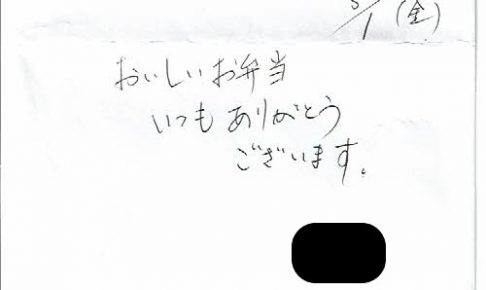 /1 (金)
おいしいお弁当
いつもありがとう
ございます。